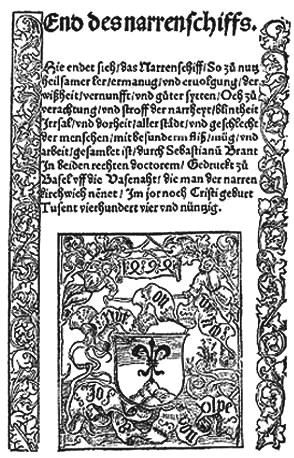 End des narrenschiffs.
Hie endet sich/das Narrenschiff/So zů nutz
heilsamer ler/ermanug/und ervolgung/der
wißheit/vernunfft/und gůter sytten/Ouch zů
verachtung/und stroff der narrheyt/blintheit
Irrsal/und dorheit/aller städt/und geschlecht
der menschen/mit besunderm fliß/müg/und
arbeit/gesamlet ist/durch Sebastianū Brant
In beiden rechten doctorem/Gedruckt zů
Basel uff die Vasenaht/die man der narren
kirchwich nēnet/Im jor noch Cristi geburt
Tusent vierhundert vier und nüntzig.
olpe